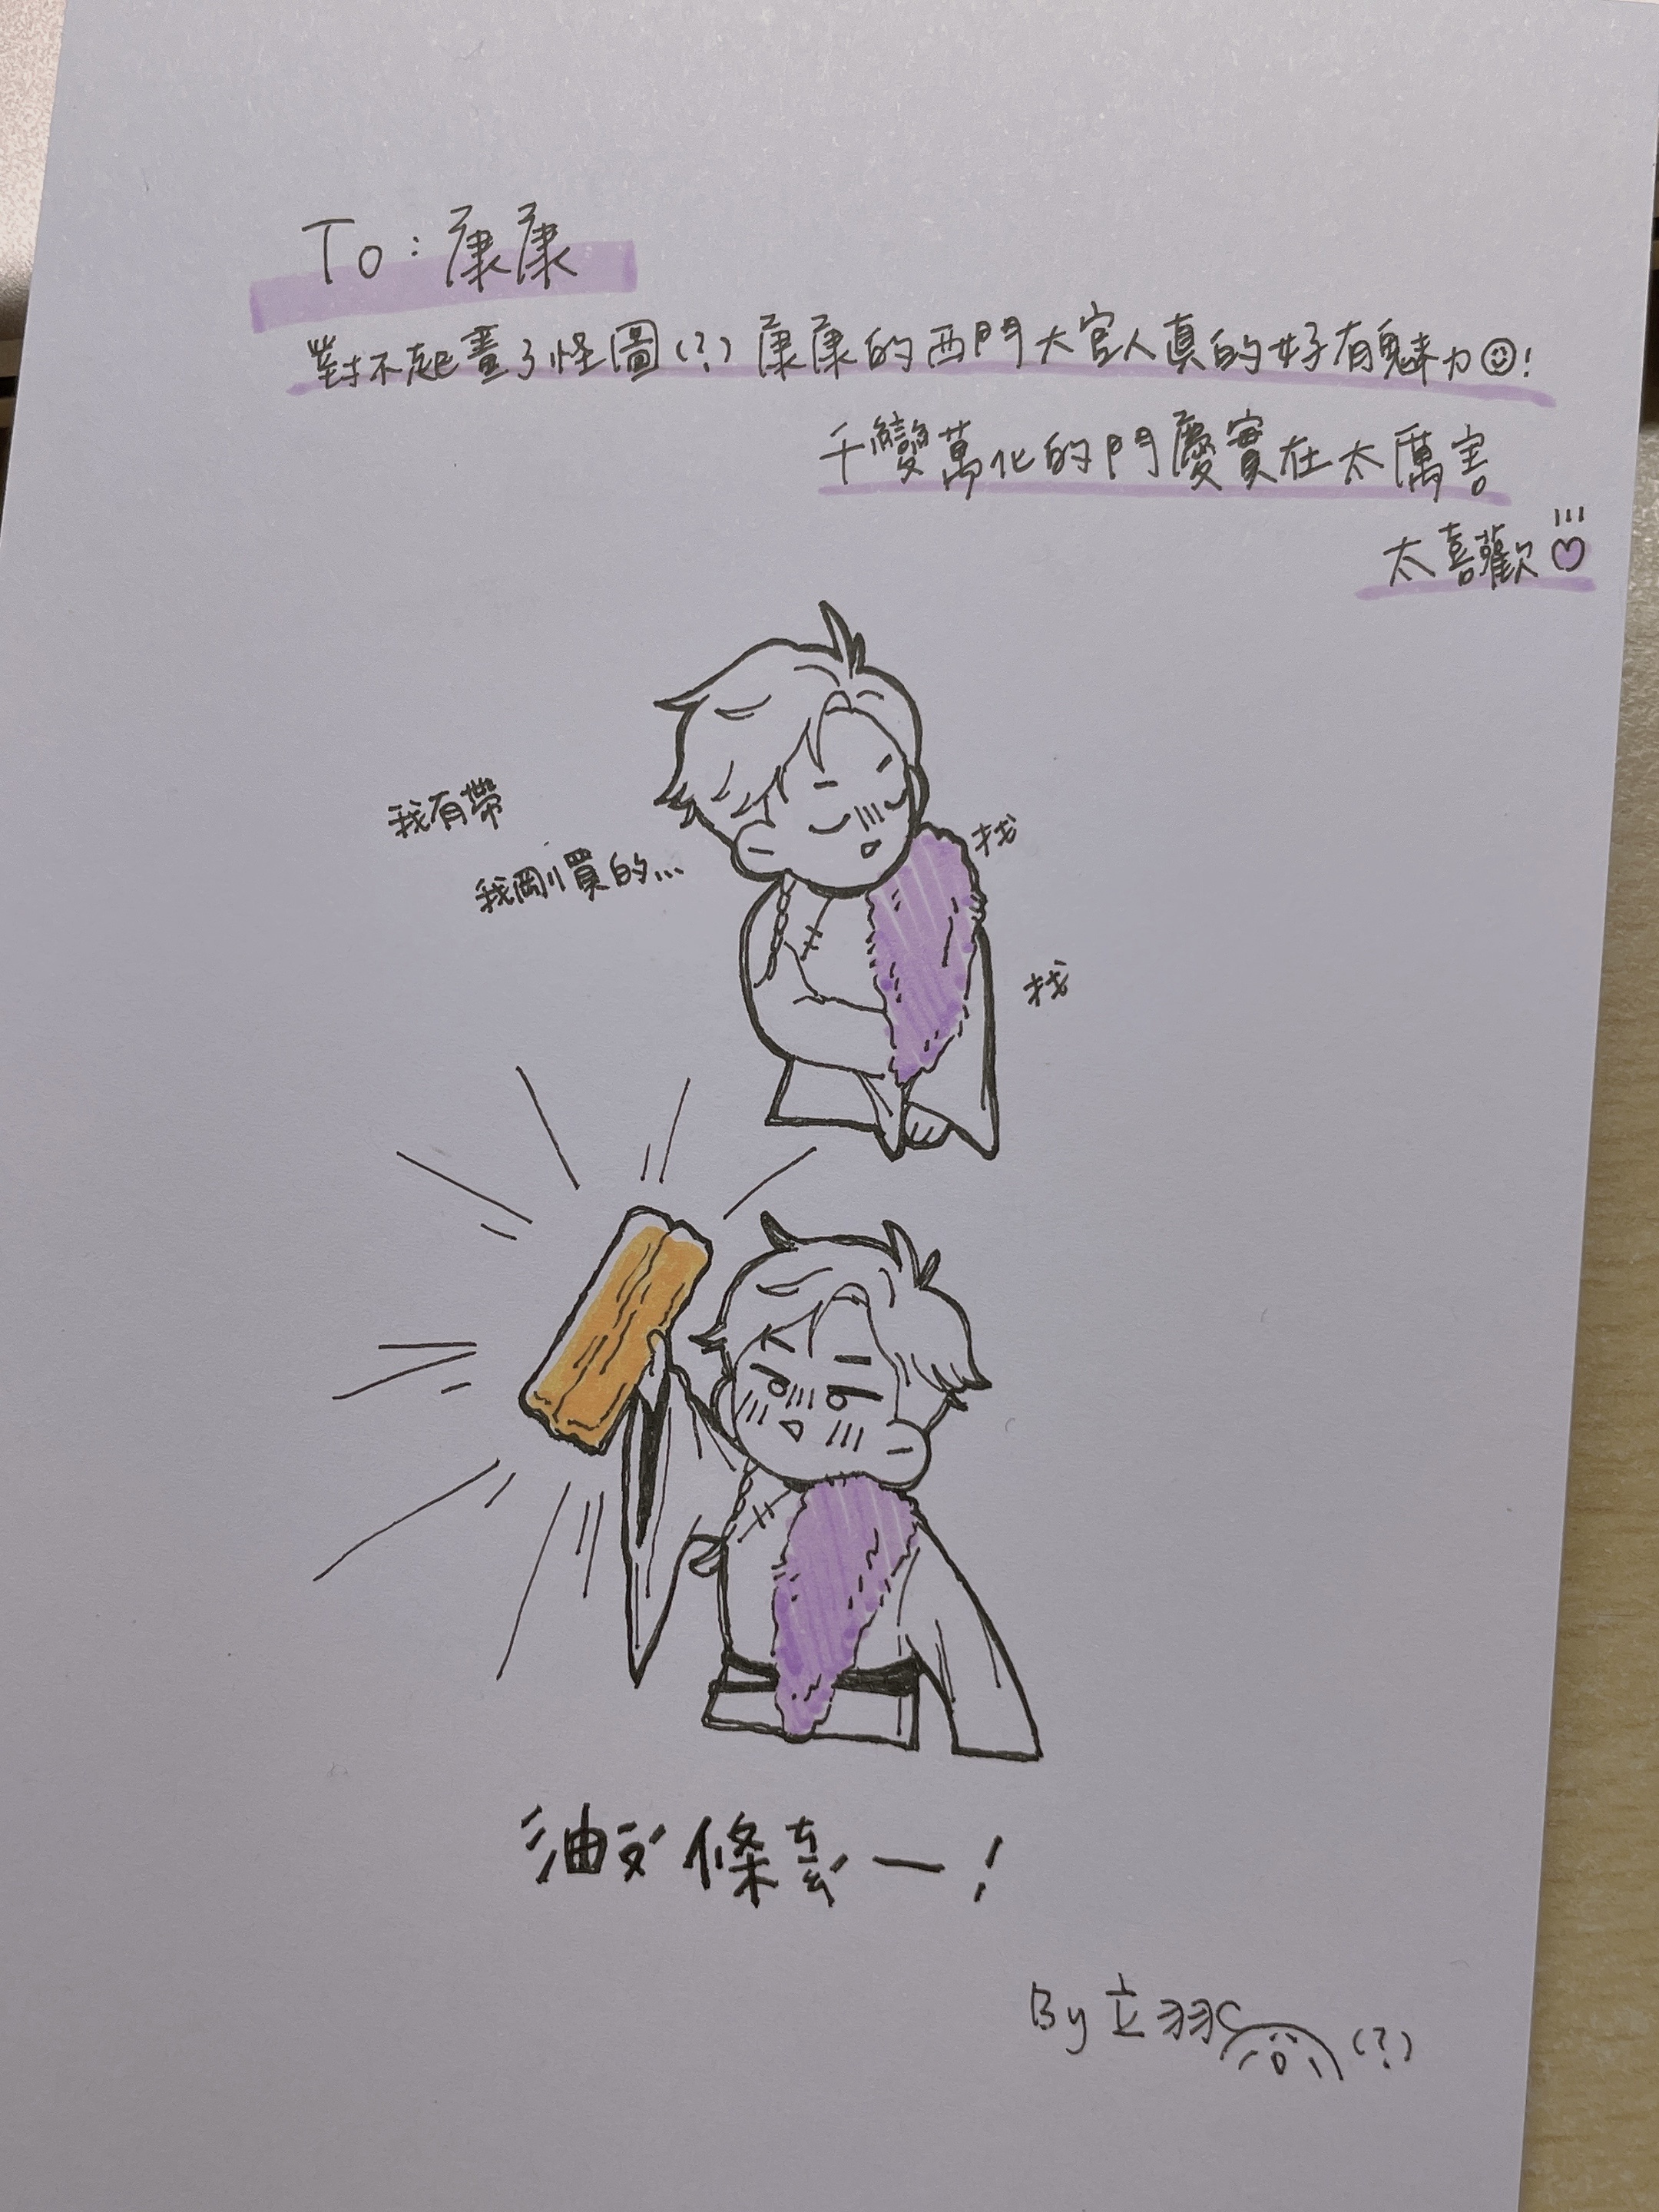 To：康康
對不起畫了怪圖(?) 康康的西門大官人真的好有魅力☺!
千變萬化的門慶實在太厲害
太喜歡♡
我有帶
我剛買的...
找
找
油ㄡˊ條ㄠˊ一！
By 立羽 (?)